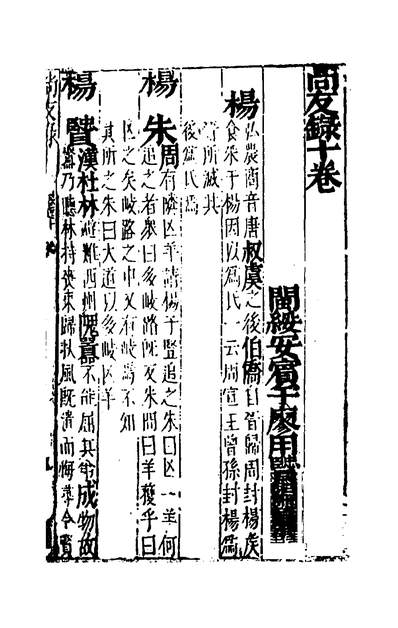 尚友錄十卷
閩綏安賓于廖用賢
楊
弘農商音唐叔虞之後伯僑自晉歸周封楊侯
食采于楊因以為氏一云周宣王曾孫封楊
所滅其
後為氏焉
楊朱
周有隣亡羊請楊子豎追之朱曰亡一羊何
追之者衆曰多岐路既反朱問曰羊獲乎曰
亡之矣岐路之中又有岐焉不知
其所之朱曰大道以多岐亡羊
楊賢
漢杜林避難西州隗囂不能屈其弟成物故
囂乃聽林持喪東歸秋風既清而悔遣令賢
尚友錄